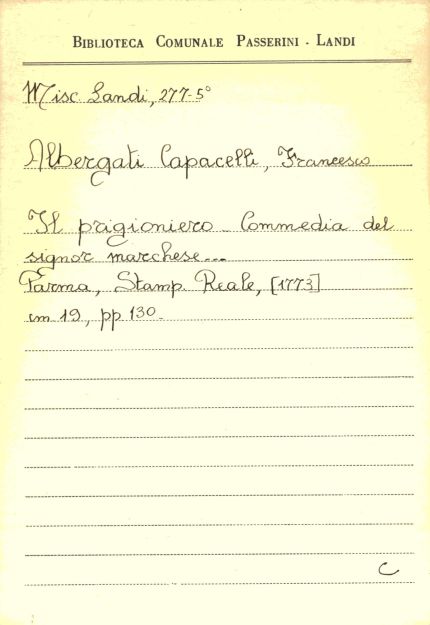 BIBLIOTECA COMUNALE PASSERINI - LANDI
Misc. Landi, 277-5°
Albergati Capacelli, Francesco
Il prigioniero. Commedia del
signor marchese...
Parma, Stamp. Reale, [1773]
cm 19, pp. 130.
C